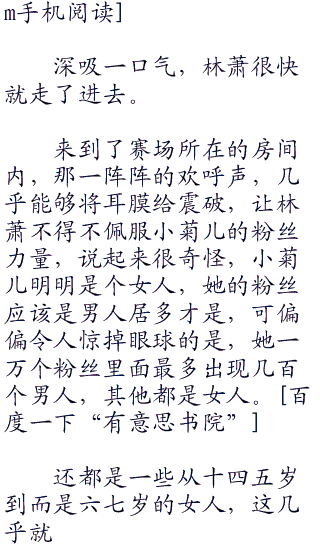 m手机阅读]
深吸一口气，林萧很快
就走了进去。
来到了赛场所在的房间
内，那一阵阵的欢呼声，几
乎能够将耳膜给震破，让林
萧不得不佩服小菊儿的粉丝
力量，说起来很奇怪，小菊
儿明明是个女人，她的粉丝
应该是男人居多才是，可偏
偏令人惊掉眼球的是，她一
万个粉丝里面最多出现几百
个男人，其他都是女人。[百
度一下“有意思书院”]
还都是一些从十四五岁
到而是六七岁的女人，这几
乎就